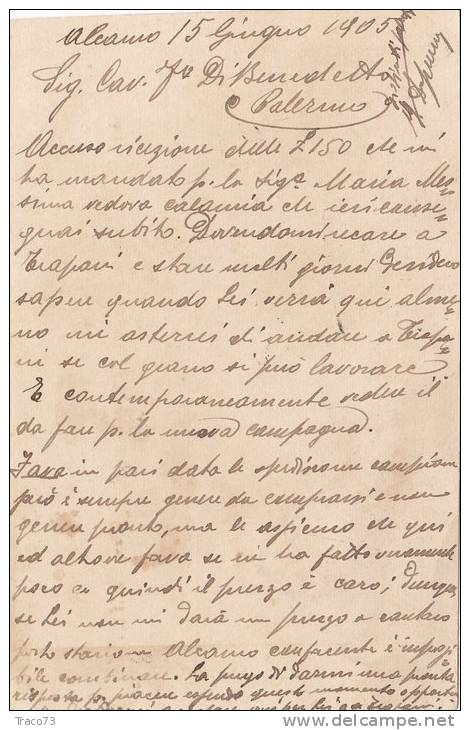 Alcamo 15 Giugno 1905
Sig. Cav. Fr. Di Benedetto
Palermo
Accuso ricezione delle £ 150 che mi
ha mandato p. la Sigª Maria Mes=
sina vedova Calamia che ieri conse=
gnai subito. Dovendomi recare a
Trapani e stare molti giorni desidero
sapere quando Lei verrà qui alme=
no mi asternei di andare a Trapa=
ni se col grano si può lavorare
E contemporaneamente vedere il
da fare p. la nuova campagna.
Fava in pari data le spedisco un campione
però è sempre genere da comprarsi e non
genere pronto, ma le assicuro che qui
ed altrove fava se ne ha fatto veramente
poco e quindi il prezzo è caro; dunque
se Lei non mi darà un prezzo a cantaro
posto stazione Alcamo confacente è impos=
bile combinare. La prego di darmi una pronta
risposta p. piacere essendo questo momento opportu
Traco73
delcampe.net